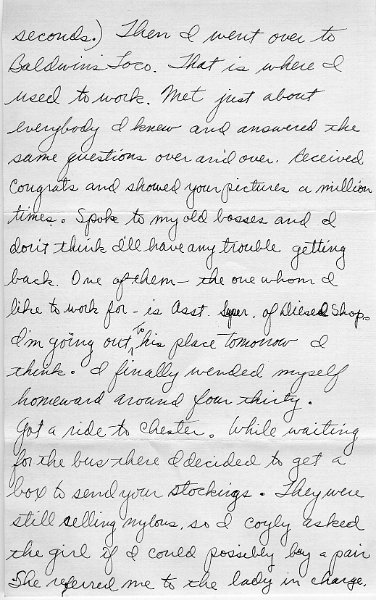 seconds.) Then I went over to
Baldwin's Loco. That is where I
used to work. Met just about
everybody I knew and answered the
same questions over and over. Received
Congrats and showed your pictures a million
times. Spoke to my old bosses and I
don't think I'll have any trouble getting
back. One of them - the one whom I
like to work for - is Asst. Super. of Diesel Shop.
I'm going out to his place tomorrow I
think. I finally wended myself
homeward around four thirty.
Got a ride to Chester. While waiting
for the bus there I decided to get a
box to send your stockings. They were
still selling nylons, so I coyly asked
the girl if I could possibly buy a pair
She referred me to the lady in charge.